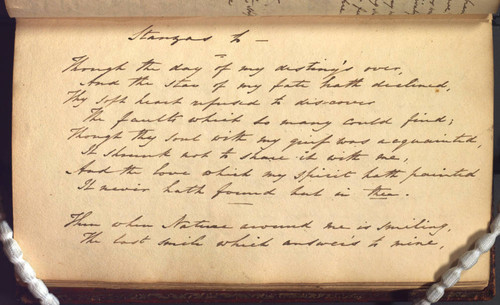 Stanzas to —
Though the day of my destiny's over,
And the star of my fate hath declined,
Thy soft heart refused to discover
The faults which so many could find;
Though thy soul with my grief was acquainted,
It shrunk not to share it with me,
And the love which my spirit hath painted
It never hath found but in thee.
Then when Nature around me is smiling,
The last smile which answers to mine,